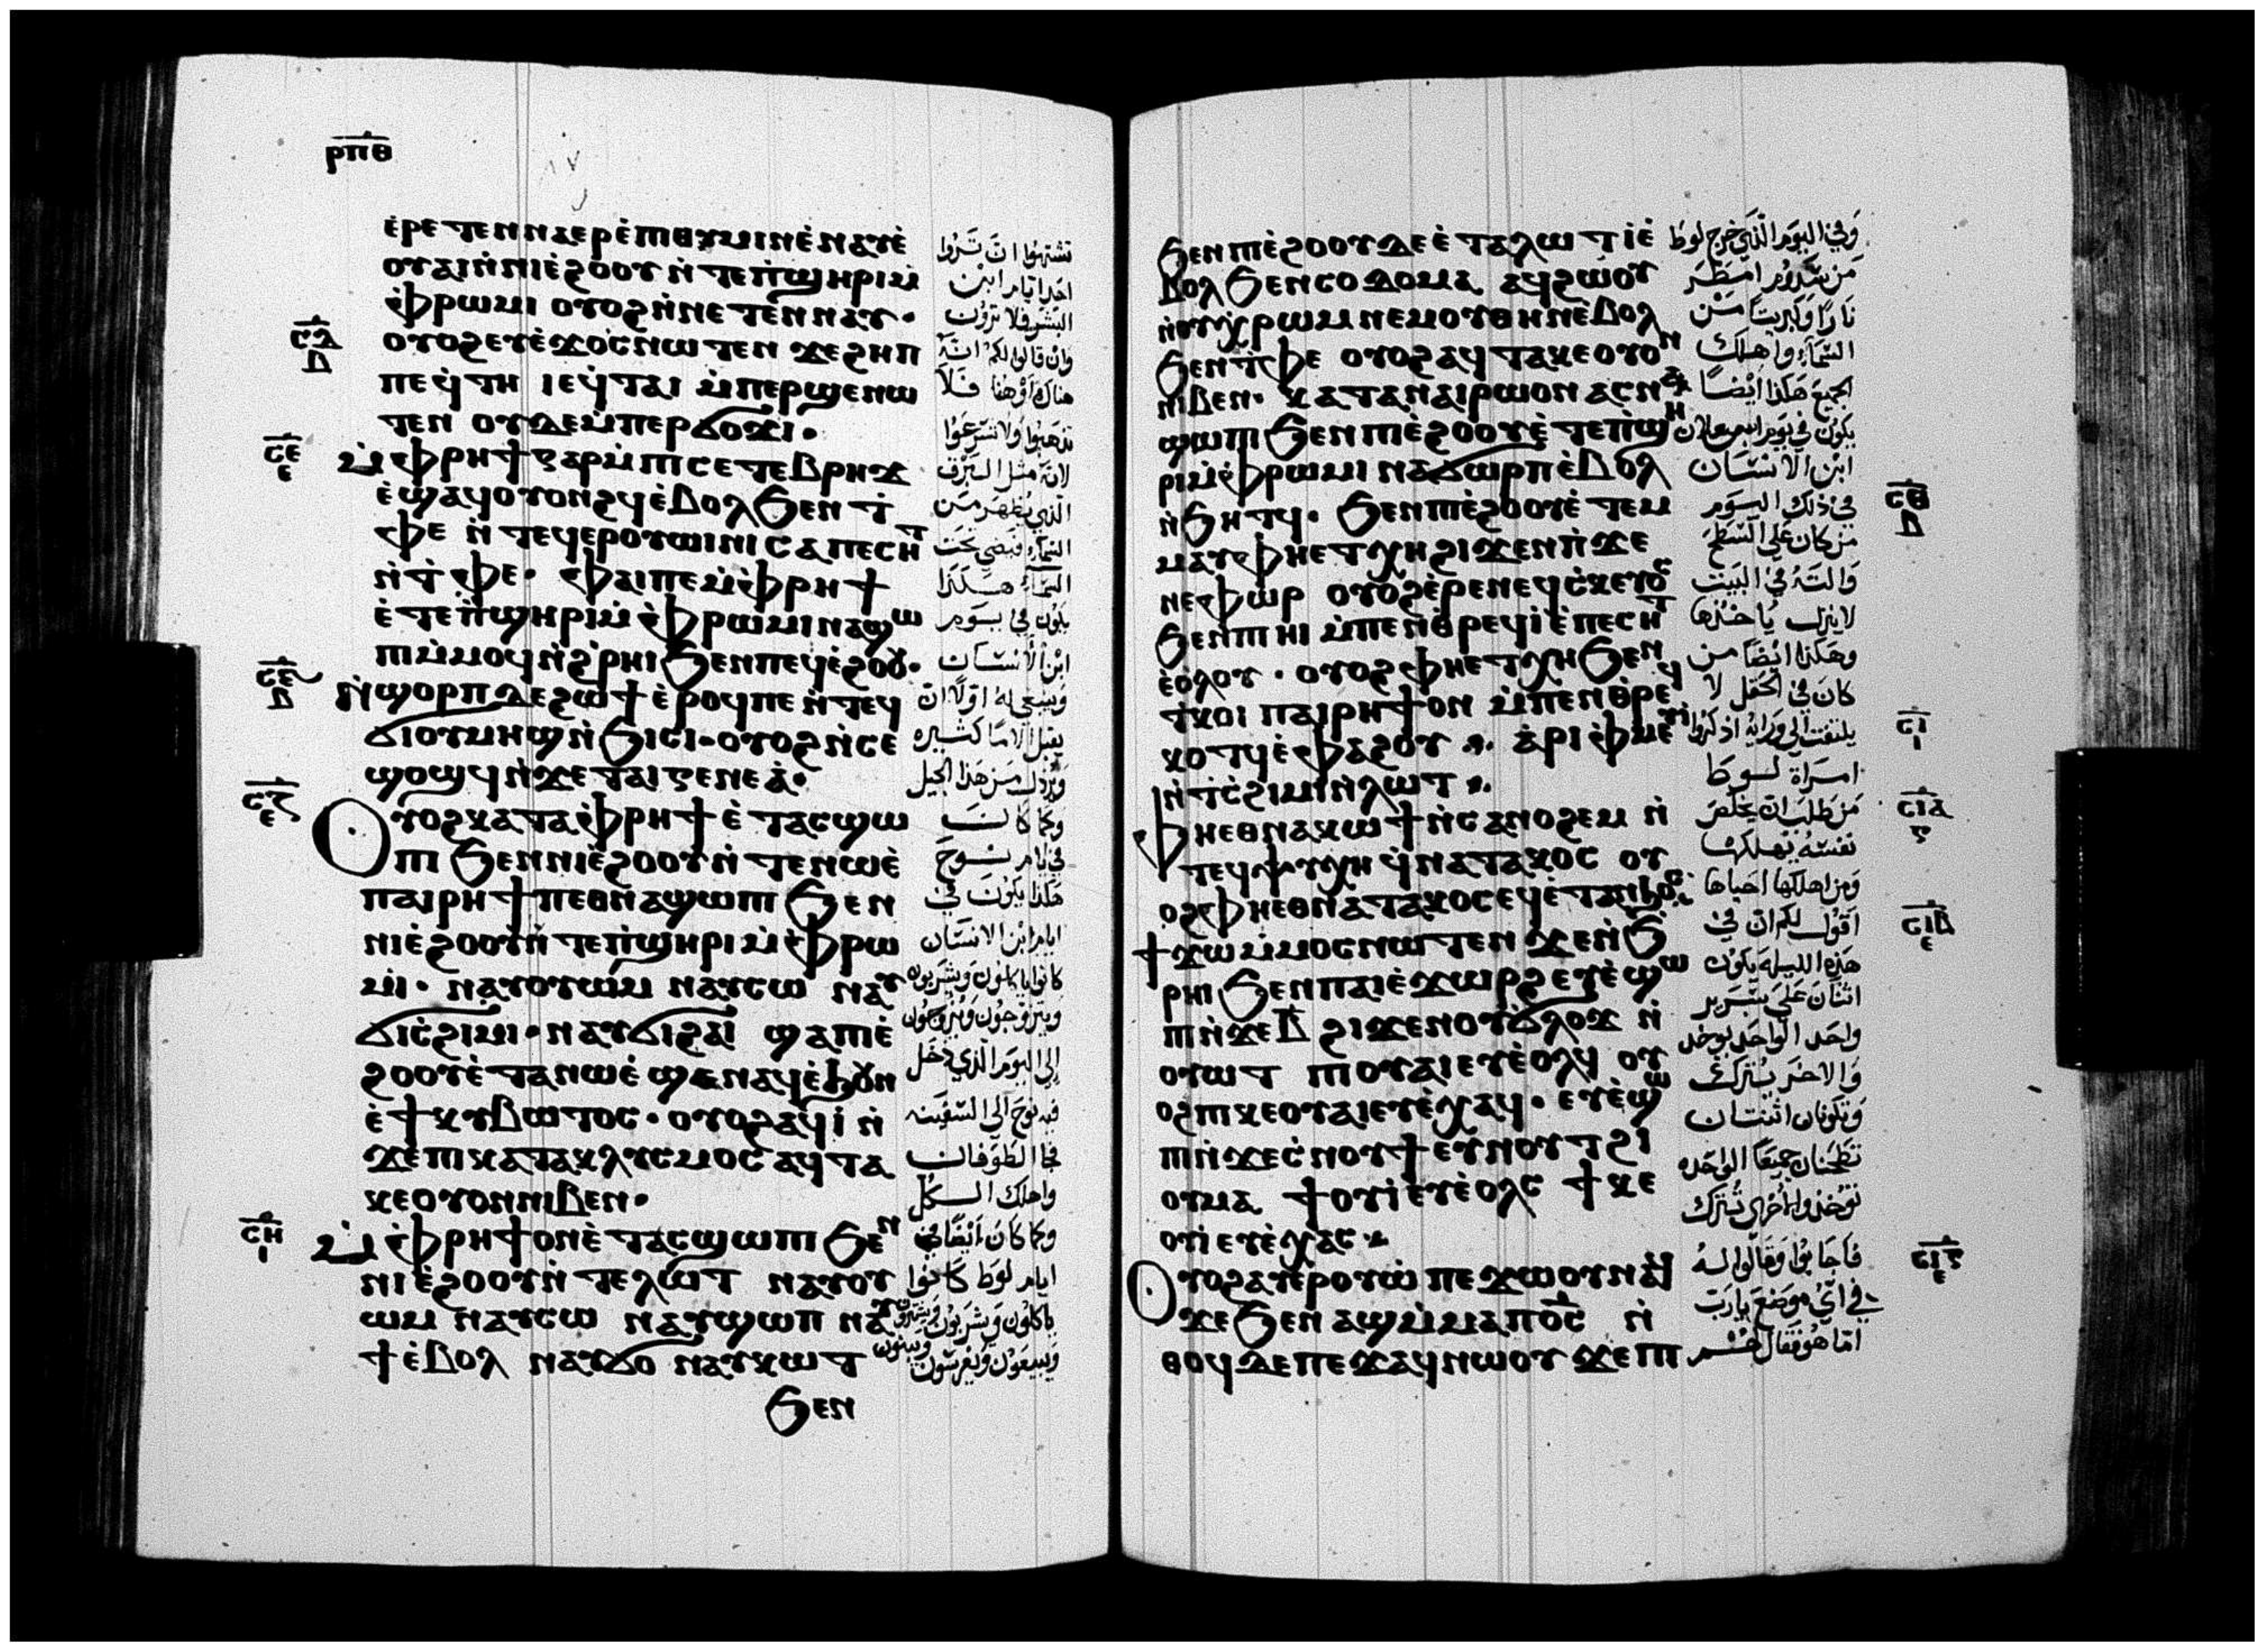 ⲣⲡⲑ
ⲉⲣⲉⲧⲉⲛⲛⲁⲉⲣⲉⲡⲓⲑⲩⲙⲓⲛ ⲉⲛⲁⲩⲉ
ⲟⲩⲁⲓ ⲛⲛⲓⲉϩⲟⲟⲩ ⲛⲧⲉⲡϣⲏⲣⲓ ⲙ
ⲫⲣⲱⲙⲓ ⲟⲩⲟϩ ⲛⲛⲉⲧⲉⲛⲛⲁⲩ·
ⲥⲇ ⲟⲩⲟϩ ⲉⲩⲉϫⲟⲥ ⲛⲱⲧⲉⲛ ϫⲉ ϩⲏⲡ
ⲡⲉ ϥⲧⲏ ⲓⲉ ϥⲧⲁⲓ ⲙⲡⲉⲣϣⲉⲛⲱ
ⲧⲉⲛ ⲟⲩⲇⲉ ⲙⲡⲉⲣϭⲟϫⲓ·
ⲥⲉ ⲙⲫⲣⲏϯ ⲅⲁⲣ ⲙⲡⲓⲥⲉⲧⲉⲃⲣⲏϫ
ⲉϣⲁϥⲟⲩⲟⲛϩϥ ⲉⲃⲟⲗ ϧⲉⲛ ⲧ
ⲫⲉ ⲛⲧⲉϥⲉⲣⲟⲩⲱⲓⲛⲓ ⲥⲁⲡⲉⲥⲏⲧ
ⲛⲧⲫⲉ· ⲫⲁⲓ ⲡⲉ ⲙⲫⲣⲏϯ
ⲉⲧⲉⲡϣⲏⲣⲓ ⲙⲫⲣⲱⲙⲓ ⲛⲁϣⲱ
ⲡⲓ ⲙⲙⲟϥ ⲛϩⲣⲏⲓ ϧⲉⲛ ⲡⲉϥⲉϩⲟⲟⲩ·
ⲛϣⲟⲣⲡ ⲇⲉ ϩⲱϯ ⲉⲣⲟϥ ⲡⲉ ⲛⲧⲉϥ
ϭⲓ ⲟⲩⲙⲏϣ ⲛϧⲓⲥⲓ· ⲟⲩⲟϩ ⲛⲥⲉ
ϣⲟϣϥ ⲛϫⲉ ⲧⲁⲓⲅⲉⲛⲉⲁ·
ⲥⲍ ⲟⲩⲟϩ ⲕⲁⲧⲁ ⲫⲣⲏϯ ⲉⲧⲁⲥϣⲱ
ⲡⲓ ϧⲉⲛ ⲛⲓⲉϩⲟⲟⲩ ⲛⲧⲉ ⲛⲱⲉ
ⲡⲁⲓⲣⲏϯ ⲡⲉⲑⲛⲁϣⲱⲡⲓ ϧⲉⲛ
ⲛⲓⲉϩⲟⲟⲩ ⲛⲧⲉⲡϣⲏⲣⲓ ⲙⲫⲣⲱ
ⲙⲓ· ⲛⲁⲩⲟⲩⲱⲙ ⲛⲁⲩⲥⲱ ⲛⲁⲩ
ϭⲓⲥϩⲓⲙⲓ· ⲛⲁⲩϭⲓϩⲁⲓ ϣⲁ ⲡⲓⲉ
ϩⲟⲟⲩ ⲉⲧⲁ ⲛⲱⲉ ϣⲉⲛⲁϥ ⲉϧⲟⲩⲛ
ⲉϯⲕⲩⲃⲱⲧⲟⲥ· ⲟⲩⲟϩ ⲁϥⲓ ⲛ
ϫⲉ ⲡⲓⲕⲁⲧⲁⲕⲗⲩⲥⲙⲟⲥ ⲁϥⲧⲁ
ⲕⲉ ⲟⲩⲟⲛ ⲛⲓⲃⲉⲛ·
ⲥⲏ ⲙⲫⲣⲏϯ ⲟⲛ ⲉⲧⲁⲥϣⲱⲡⲓ ϧⲉⲛ
ⲛⲓⲉϩⲟⲟⲩ ⲛⲧⲉ ⲗⲱⲧ ⲛⲁⲩⲟⲩ
ⲱⲙ ⲛⲁⲩⲥⲱ ⲛⲁⲩϣⲱⲡ ⲛⲁⲩ
ϯ ⲉⲃⲟⲗ ⲛⲁⲩϭⲟ ⲛⲁⲩⲕⲱⲧ
ϧⲉⲛ
تشتهوا ان تروا
احد ايام ابن
البشر فلا ترون
وان قالوا لكم انه
هناك او هنا فلا
تذهبوا ولا تسرعوا
لانه مثل البرق
الذي يظهر من
السماء فيضي تحت
السماء هكذا
يكون في يوم
ابن الانسان
وينبغي له اولا ان
يقبل الاما كثيره
ويرذل من هذا الجيل
وكما كانت
في ايام نوح
هكذا يكون في
ايام ابن الانسان
كانوا ياكلون ويشربون
ويتزوجون ويزوجون
الى اليوم الذي دخل
فيه نوح الى السفينه
فجا الطوفان
واهلك الكل
وكما كان ايضا في
ايام لوط كانوا
ياكلون ويشربون ويشترون
ويبيعون ويغرسون ويبنون
ϧⲉⲛ ⲡⲓⲉϩⲟⲟⲩ ⲇⲉ ⲉⲧⲁ ⲗⲱⲧ ⲓ ⲉ
ⲃⲟⲗ ϧⲉⲛ ⲥⲟⲇⲟⲙⲁ ⲁϥϩⲱⲟⲩ
ⲛⲟⲩⲭⲣⲱⲙ ⲛⲉⲙ ⲟⲩⲑⲏⲛ ⲉⲃⲟⲗ
ϧⲉⲛ ⲧⲫⲉ ⲟⲩⲟϩ ⲁϥⲧⲁⲕⲉ ⲟⲩⲟⲛ
ⲛⲓⲃⲉⲛ· ⲕⲁⲧⲁ ⲛⲁⲓⲣⲱ ⲟⲛ ⲁⲥⲛⲁ
ϣⲱⲡⲓ ϧⲉⲛ ⲡⲓⲉϩⲟⲟⲩ ⲉⲧⲉⲡϣⲏ
ⲣⲓ ⲙⲫⲣⲱⲙⲓ ⲛⲁϭⲱⲣⲡ ⲉⲃⲟⲗ
ⲛϧⲏⲧϥ· ϧⲉⲛ ⲡⲓⲉϩⲟⲟⲩ ⲉⲧⲉⲙ
ⲙⲁⲩ ⲫⲏ ⲉⲧⲭⲏ ϩⲓϫⲉⲛ ⲡϫⲉ
ⲛⲉⲫⲱⲣ ⲟⲩⲟϩ ⲉⲣⲉ ⲛⲉϥⲥⲕⲉⲩⲟⲥ
ϧⲉⲛ ⲡⲓⲏⲓ ⲙⲡⲉⲛⲑⲣⲉϥⲓ ⲉⲡⲉⲥⲏⲧ
ⲉⲟⲗⲟⲩ· ⲟⲩⲟϩ ⲫⲏ ⲉⲧⲭⲏ ϧⲉⲛ
ⲧⲕⲟⲓ ⲡⲁⲓⲣⲏϯ ⲟⲛ ⲙⲡⲉⲛⲑⲣⲉϥ
ⲕⲟⲧϥ ⲉⲫⲁϩⲟⲩ ⁘ ⲁⲣⲓⲫⲙⲉⲩⲓ
ⲛⲧⲥϩⲓⲙⲓ ⲛⲗⲱⲧ ⁘
ⲫⲏ ⲉⲑⲛⲁⲕⲱϯ ⲛⲥⲁ ⲛⲟϩⲉⲙ ⲛ
ⲧⲉϥⲯⲩⲭⲏ ϥⲛⲁⲧⲁⲕⲟⲥ ⲟⲩ
ⲟϩ ⲫⲏ ⲉⲑⲛⲁⲧⲁⲕⲟⲥ ⲉϥⲉⲧⲁⲛϧⲟⲥ
ϯϫⲱ ⲙⲙⲟⲥ ⲛⲱⲧⲉⲛ ϫⲉ ⲛϧ
ⲣⲏⲓ ϧⲉⲛ ⲡⲁⲓⲉϫⲱⲣϩ ⲉⲩⲉϣⲱ
ⲡⲓ ⲛϫⲉ ⲃ ϩⲓϫⲉⲛ ⲟⲩϭⲗⲟϫ ⲛ
ⲟⲩⲱⲧ ⲡⲓⲟⲩⲁⲓ ⲉⲩⲉⲟⲗϥ ⲟⲩ
ⲟϩ ⲡⲓⲕⲉⲟⲩⲁⲓ ⲉⲩⲉⲭⲁϥ· ⲉⲩⲉϣⲱ
ⲡⲓ ⲛϫⲉ ⲥⲛⲟⲩϯ ⲉⲩⲛⲟⲩⲧ ϩⲓ
ⲟⲩⲙⲁ ϯⲟⲩⲓ ⲉⲩⲉⲟⲗⲥ ϯⲕⲉ
ⲟⲩⲓ ⲉⲩⲉⲭⲁⲥ
ⲟⲩⲟϩ ⲁⲩⲉⲣⲟⲩⲱ ⲡⲉϫⲱⲟⲩ ⲛⲁϥ
ϫⲉ ϧⲉⲛ ⲁϣ ⲙⲙⲁ ⲡⲟⲥ ⲛ
ⲑⲟϥ ⲇⲉ ⲡⲉϫⲁϥ ⲛⲱⲟⲩ ϫⲉ ⲡⲓ
وفي اليوم الذي خرج لوط
من سدوم امطر
نارا وكبريتا من
السماء واهلك
الجميع هكذا ايضا
يكون في يوم
ابن الانسان
في ذلك اليوم
من كان على السطح
والته في البيت
لا ينزل ياخذها
وهكذا ايضا من
كان في الحقل لا
يلتفت الى ورايه اذكروا
امراة لوط
من طلب ان يخلص
نفسه يهلكها
ومن اهلكها احياها
اقول لكم ان في
هذه الليله يكون
اثنان على سرير
واحد الواحد يوخد
والاخر يترك
وتكونان اثنتان
تطحنان جميعا الواحده
توخذ والاخرى تترك
فاجابوا وقالوا له
في اي موضع يارب
اما هو فقال
ⲥⲑ
ⲥⲓ
ⲥⲓⲁ
ⲥⲓⲃ